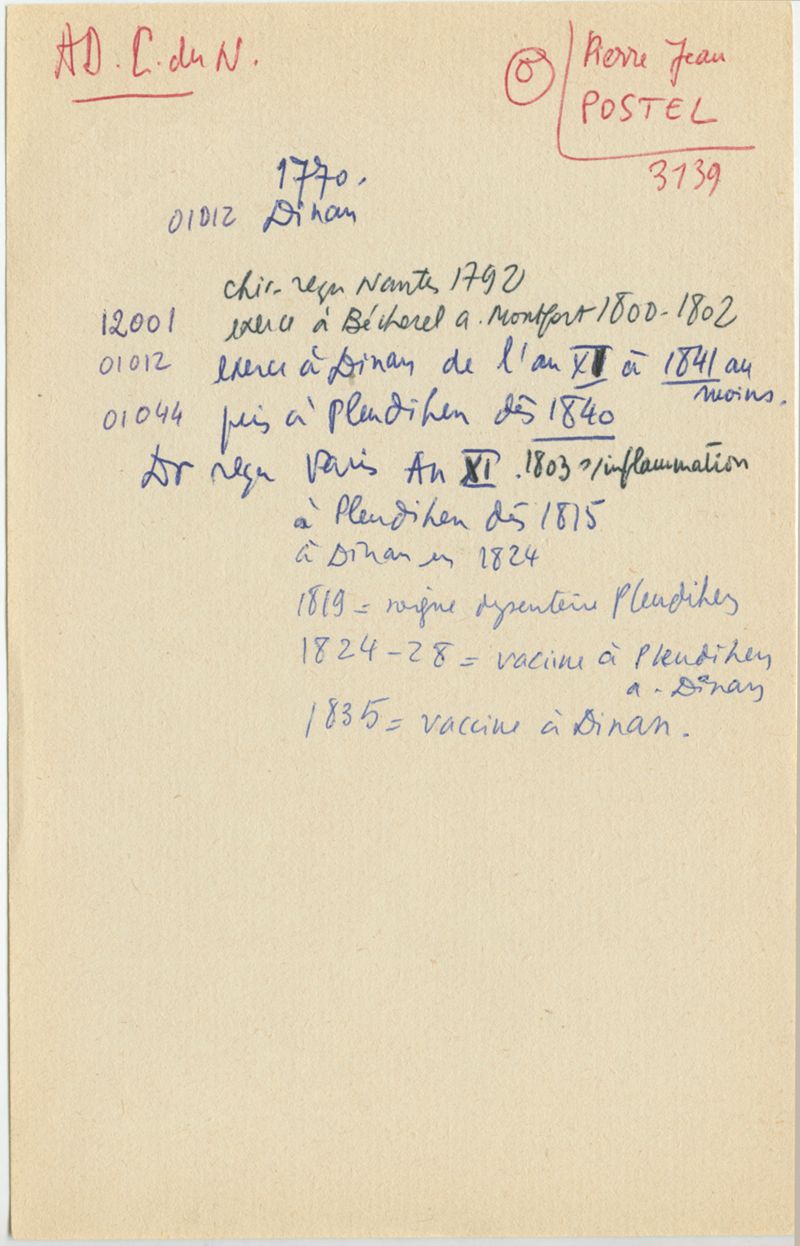 AD. C. du N.
O
Pierre Jean
POSTEL
3139
1770.
01012 Dinan
chir. reçu Nantes 1792
12001 exerce à Bécherel a. Montfort 1800-1802
01012 exerce à Dinan de l'an XI à 1841 au
moins.
01044 puis à Pleudihen dès 1840
Dr reçu Paris An XI .1803 s/inflammation
à Pleudihen dès 1815
à Dinan en 1824
1819 = soigne dysenterie Pleudihen
1824-28 = vaccine à Pleudihen
a. Dinan
1835 = vaccine à Dinan.